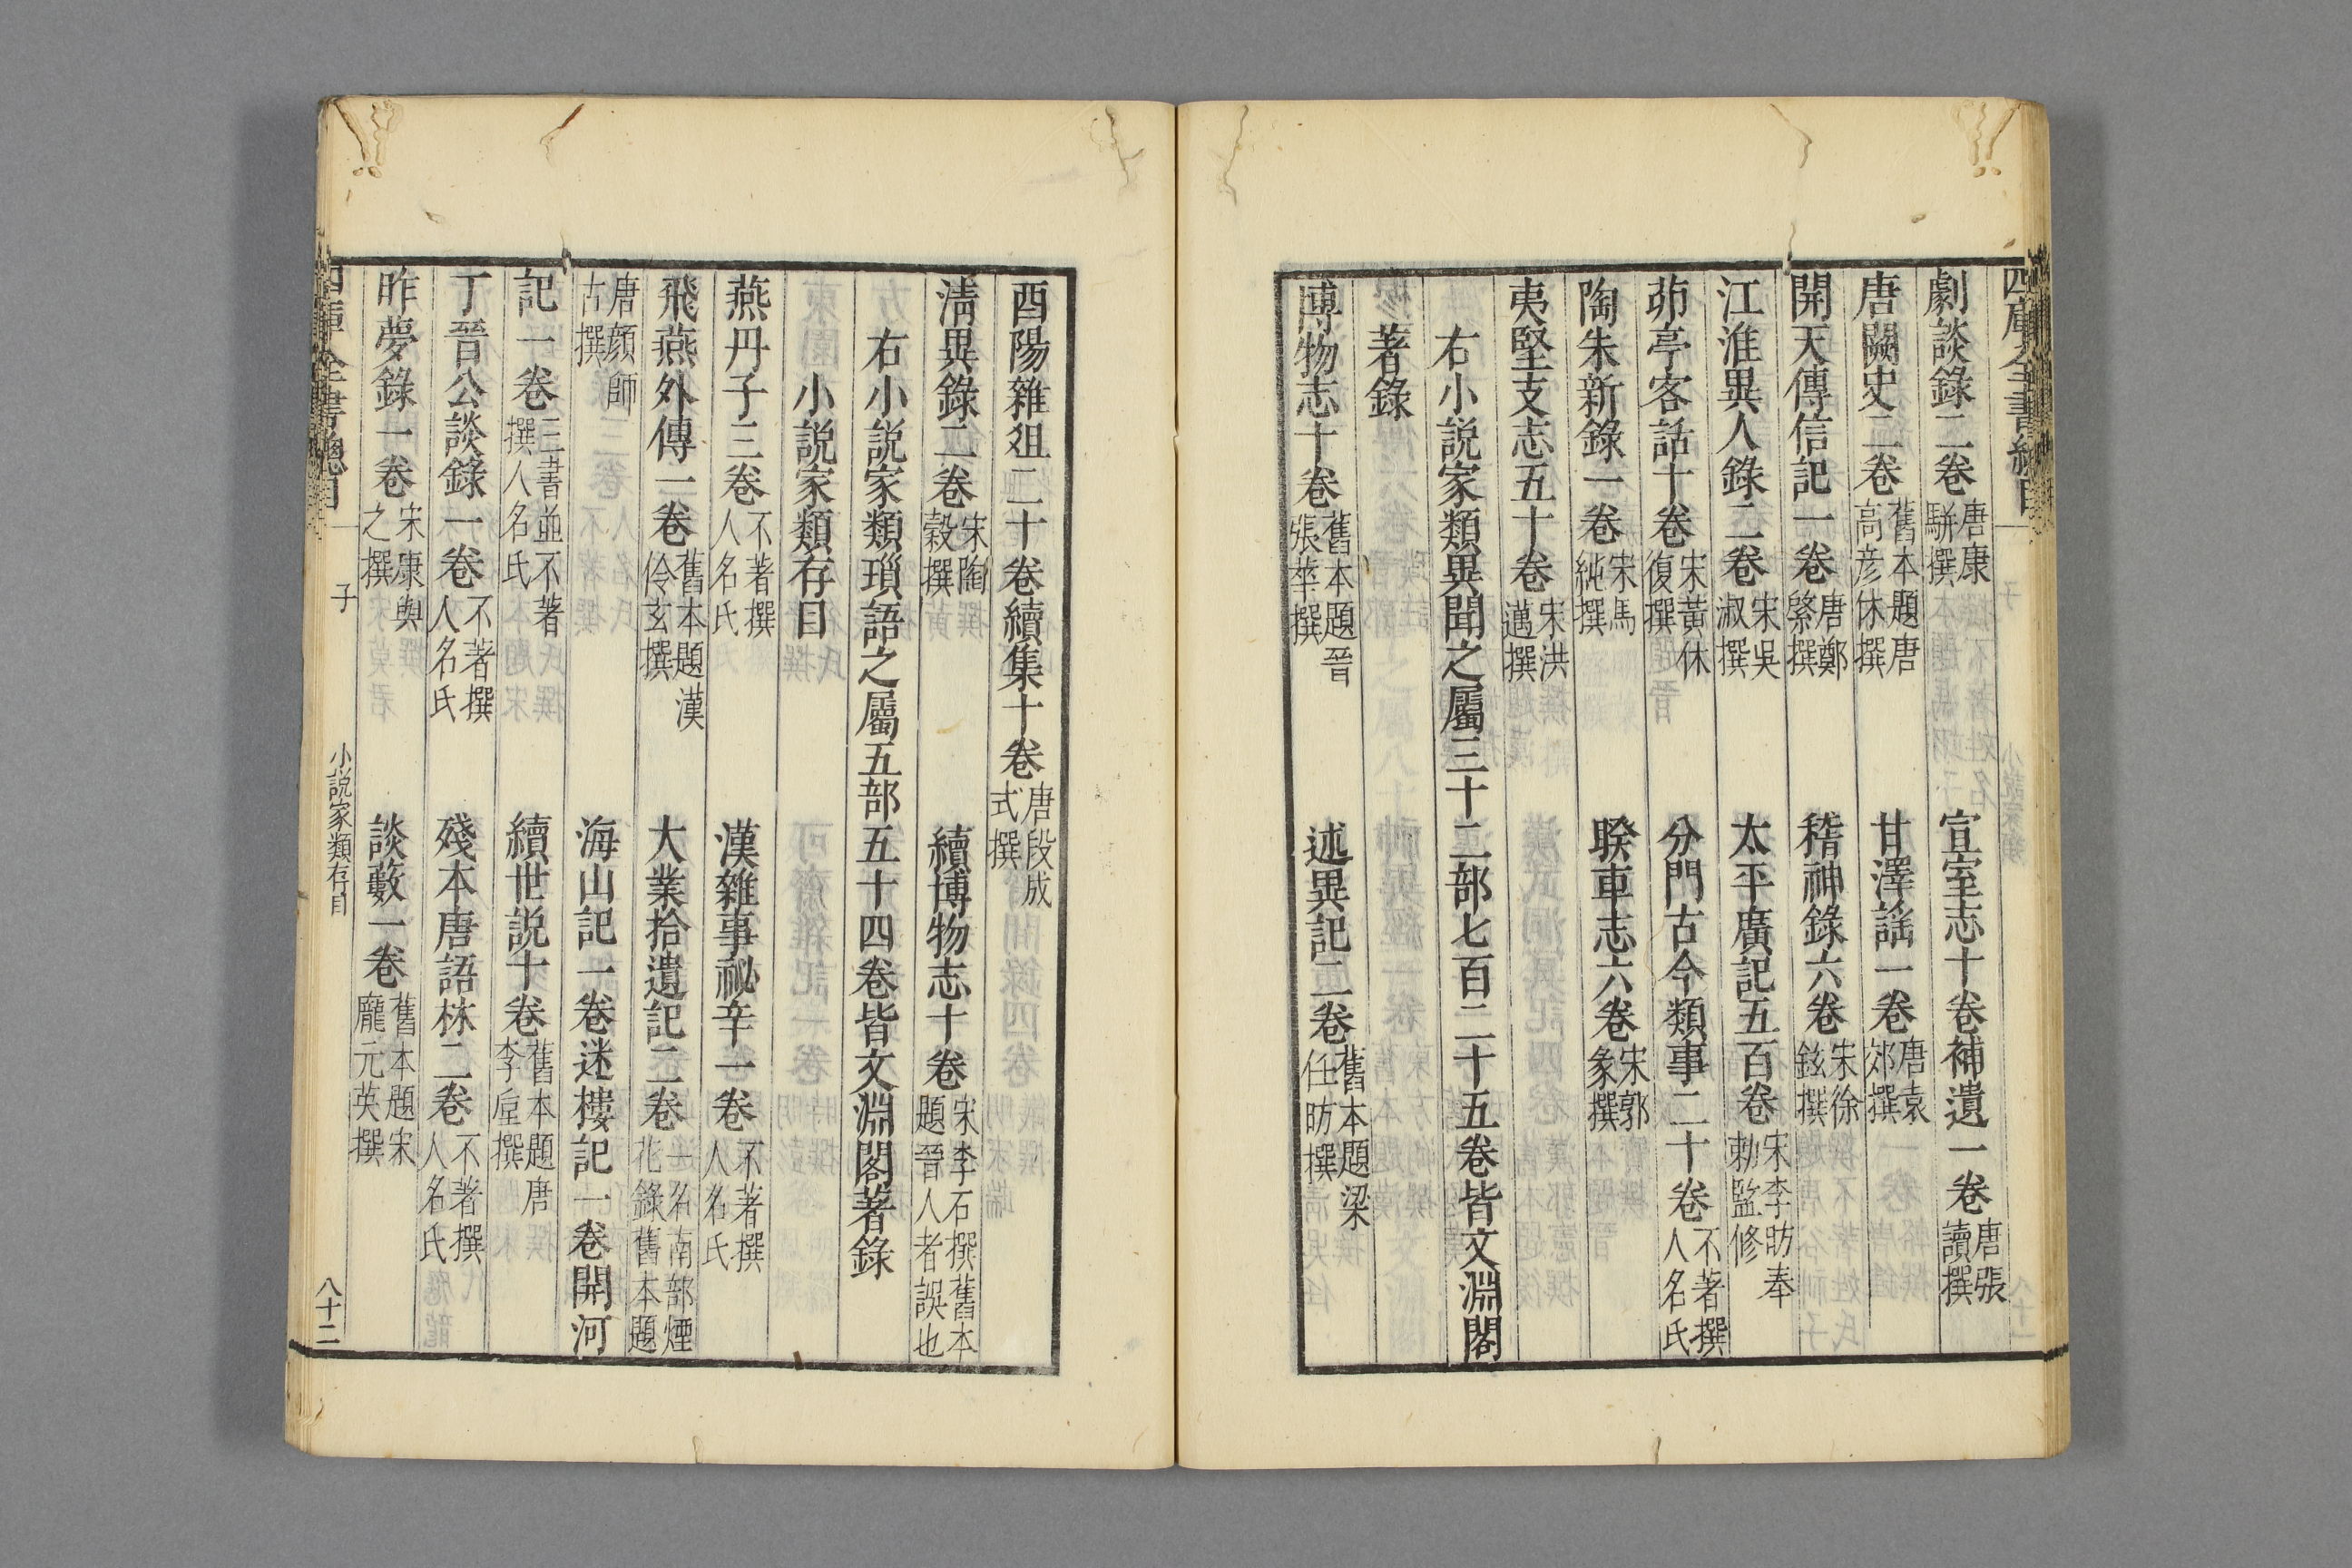 四庫全書總目 子 小說家類
劇談錄二卷 唐康駢撰 宣室志十卷補遺一卷 唐張讀撰
唐闕史二卷 舊本題唐高彦休撰 甘澤謡一卷 唐袁郊撰
開天傳信記一卷 唐鄭綮撰 稽神錄六卷 宋徐鉉撰
江淮異人錄二卷 宋吳淑撰 太平廣記五百卷 宋李昉奉勅監修
茆亭客話十卷 宋黃休復撰 分門古今類事二十卷 不著撰人名氏
陶朱新錄一卷 宋馬純撰 睽車志六卷 宋郭彖撰
夷堅支志五十卷 宋洪邁撰
右小説家類異聞之屬三十二部七百二十五卷皆文淵閣
著錄
博物志十卷 舊本題晉張華撰 述異記二卷 舊本題梁任昉撰
酉陽雜俎二十卷續集十卷 唐段成式撰
清異錄二卷 宋陶穀撰 續博物志十卷 宋李石撰舊本題晉人者誤也
右小説家類瑣語之屬五部五十四卷皆文淵閣著錄
小説家類存目
燕丹子三卷 不著撰人名氏 漢雜事祕辛一卷 不著撰人名氏
飛燕外傳一卷 舊本題漢伶玄撰 大業拾遺記二卷 一名南部煙花錄舊本題
唐顔師古撰 海山記一卷迷樓記一卷開河
記一卷 三書並不著撰人名氏 續世説十卷 舊本題唐李垕撰
丁晉公談錄一卷 不著撰人名氏 殘本唐語林二卷 不著撰人名氏
昨夢錄一卷 宋康與之撰 談藪一卷 舊本題宋龐元英撰
四庫全書總目 子 小說家類存目 八十二